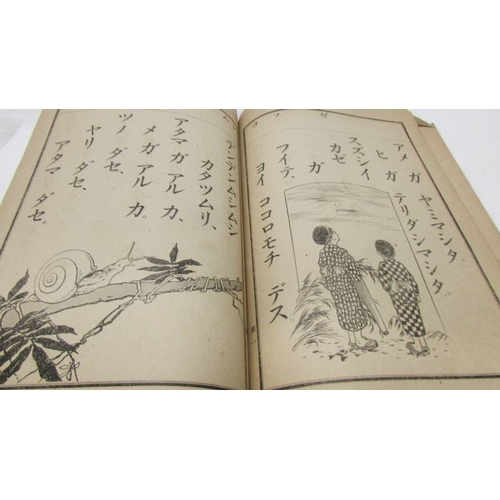 アメ ガ ヤミマシタ。
ヒ ガ テリダシマシタ。
スズシイ
カゼ ガ
フイテ、
ヨイ ココロモチ デス
デンデンムシムシ
カタツムリ、
アタマガ アル カ、
メガ アル カ。
ツノ ダセ、
ヤリ ダセ、
アタマ ダセ。